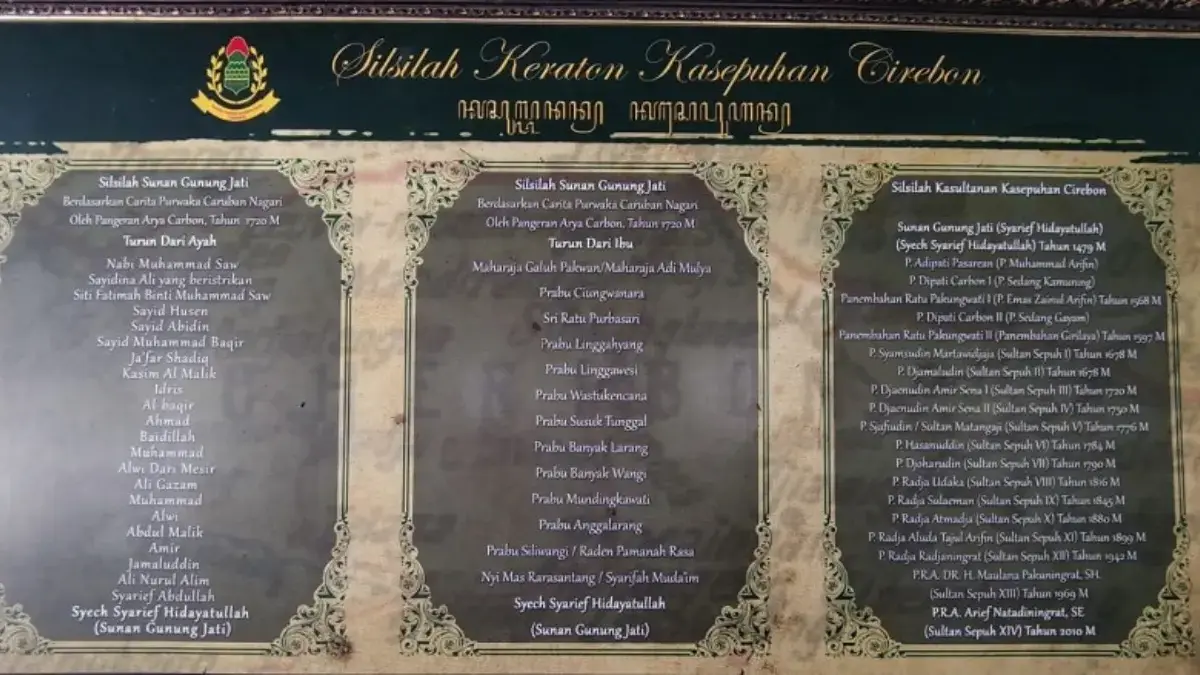 Silsilah Keraton Kasepuhan Cirebon
Silsilah Sunan Gunung Jati
Berdasarkan Carita Purwaka Caruban Nagari
Oleh Pangeran Arya Carbon, Tahun 1720 M
Turun Dari Ayah
Nabi Muhammad Saw
Sayidina Ali yang beristrikan
Siti Fatimah Binti Muhammad Saw
Sayid Husen
Sayid Abidin
Sayid Muhammad Baqir
Ja'far Shadiq
Kasim Al Malik
Idris
Al-baqir
Ahmad
Baidillah
Muhammad
Alwi Dari Mesir
Ali Gazam
Muhammad
Alwi
Abdul Malik
Amir
Jamaluddin
Ali Nurul Alim
Syarief Abdullah
Syech Syarief Hidayatullah
(Sunan Gunung Jati)
Silsilah Sunan Gunung Jati
Berdasarkan Carita Purwaka Caruban Nagari
Oleh Pangeran Arya Carbon, Tahun 1720 M
Turun Dari Ibu
Maharaja Galuh Pakwan/Maharaja Adi Mulya
Prabu Ciungwanara
Sri Ratu Purbasari
Prabu Linggahyang
Prabu Linggawesi
Prabu Wastukencana
Prabu Susuk Tunggal
Prabu Banyak Larang
Prabu Banyak Wangi
Prabu Mundingkawati
Prabu Anggalarang
Prabu Siliwangi / Raden Pamanah Rasa
Nyi Mas Rarasantang / Syarifah Muda'im
Syech Syarief Hidayatullah
(Sunan Gunung Jati)
Silsilah Kasultanan Kasepuhan Cirebon
Sunan Gunung Jati (Syarief Hidayatullah)
(Syech Syarief Hidayatullah) Tahun 1479 M
P. Adipati Pasarean (P. Muhammad Arifin)
P. Dipati Carbon I (P. Sedang Kamuning)
Panembahan Ratu Pakungwati I (P. Emas Zainul Arifin) Tahun 1568 M
P. Dipati Carbon II (P. Sedang Gayam)
Panembahan Ratu Pakungwati II (Panembahan Girilaya) Tahun 1597 M
P. Syamsudin Martawidjaja (Sultan Sepuh I) Tahun 1678 M
P. Djamaludin (Sultan Sepuh II) Tahun 1678 M
P. Djaenudin Amir Sena I (Sultan Sepuh III) Tahun 1720 M
P. Djaenudin Amir Sena II (Sultan Sepuh IV) Tahun 1750 M
P. Sjafiudin / Sultan Matangaji (Sultan Sepuh V) Tahun 1776 M
P. Hasanuddin (Sultan Sepuh VI) Tahun 1784 M
P. Djoharudin (Sultan Sepuh VII) Tahun 1790 M
P. Radja Udaka (Sultan Sepuh VIII) Tahun 1816 M
P. Radja Sulaeman (Sultan Sepuh IX) Tahun 1845 M
P. Radja Atmadja (Sultan Sepuh X) Tahun 1880 M
P. Radja Aluda Tajul Arifin (Sultan Sepuh XI) Tahun 1899 M
P. Radja Radjaningrat (Sultan Sepuh XII) Tahun 1942 M
P.R.A. DR. H. Maulana Pakuningrat, SH.
(Sultan Sepuh XIII) Tahun 1969 M
P.R.A. Arief Natadiningrat, SE
(Sultan Sepuh XIV) Tahun 2010 M